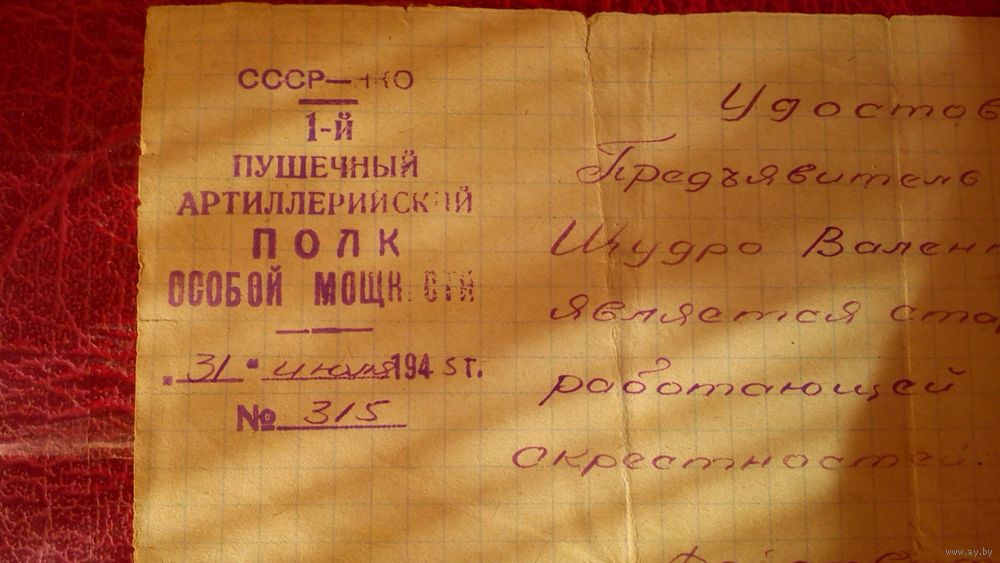 СССР—НКО
1-й
ПУШЕЧНЫЙ
АРТИЛЛЕРИЙСКИЙ
ПОЛК
ОСОБОЙ МОЩНОСТИ
„31“ июля 1945 г.
№ 315
Удостов
Предъявитель
Шудро Вален
является ста
работающей
окрестностей.
www.ay.by